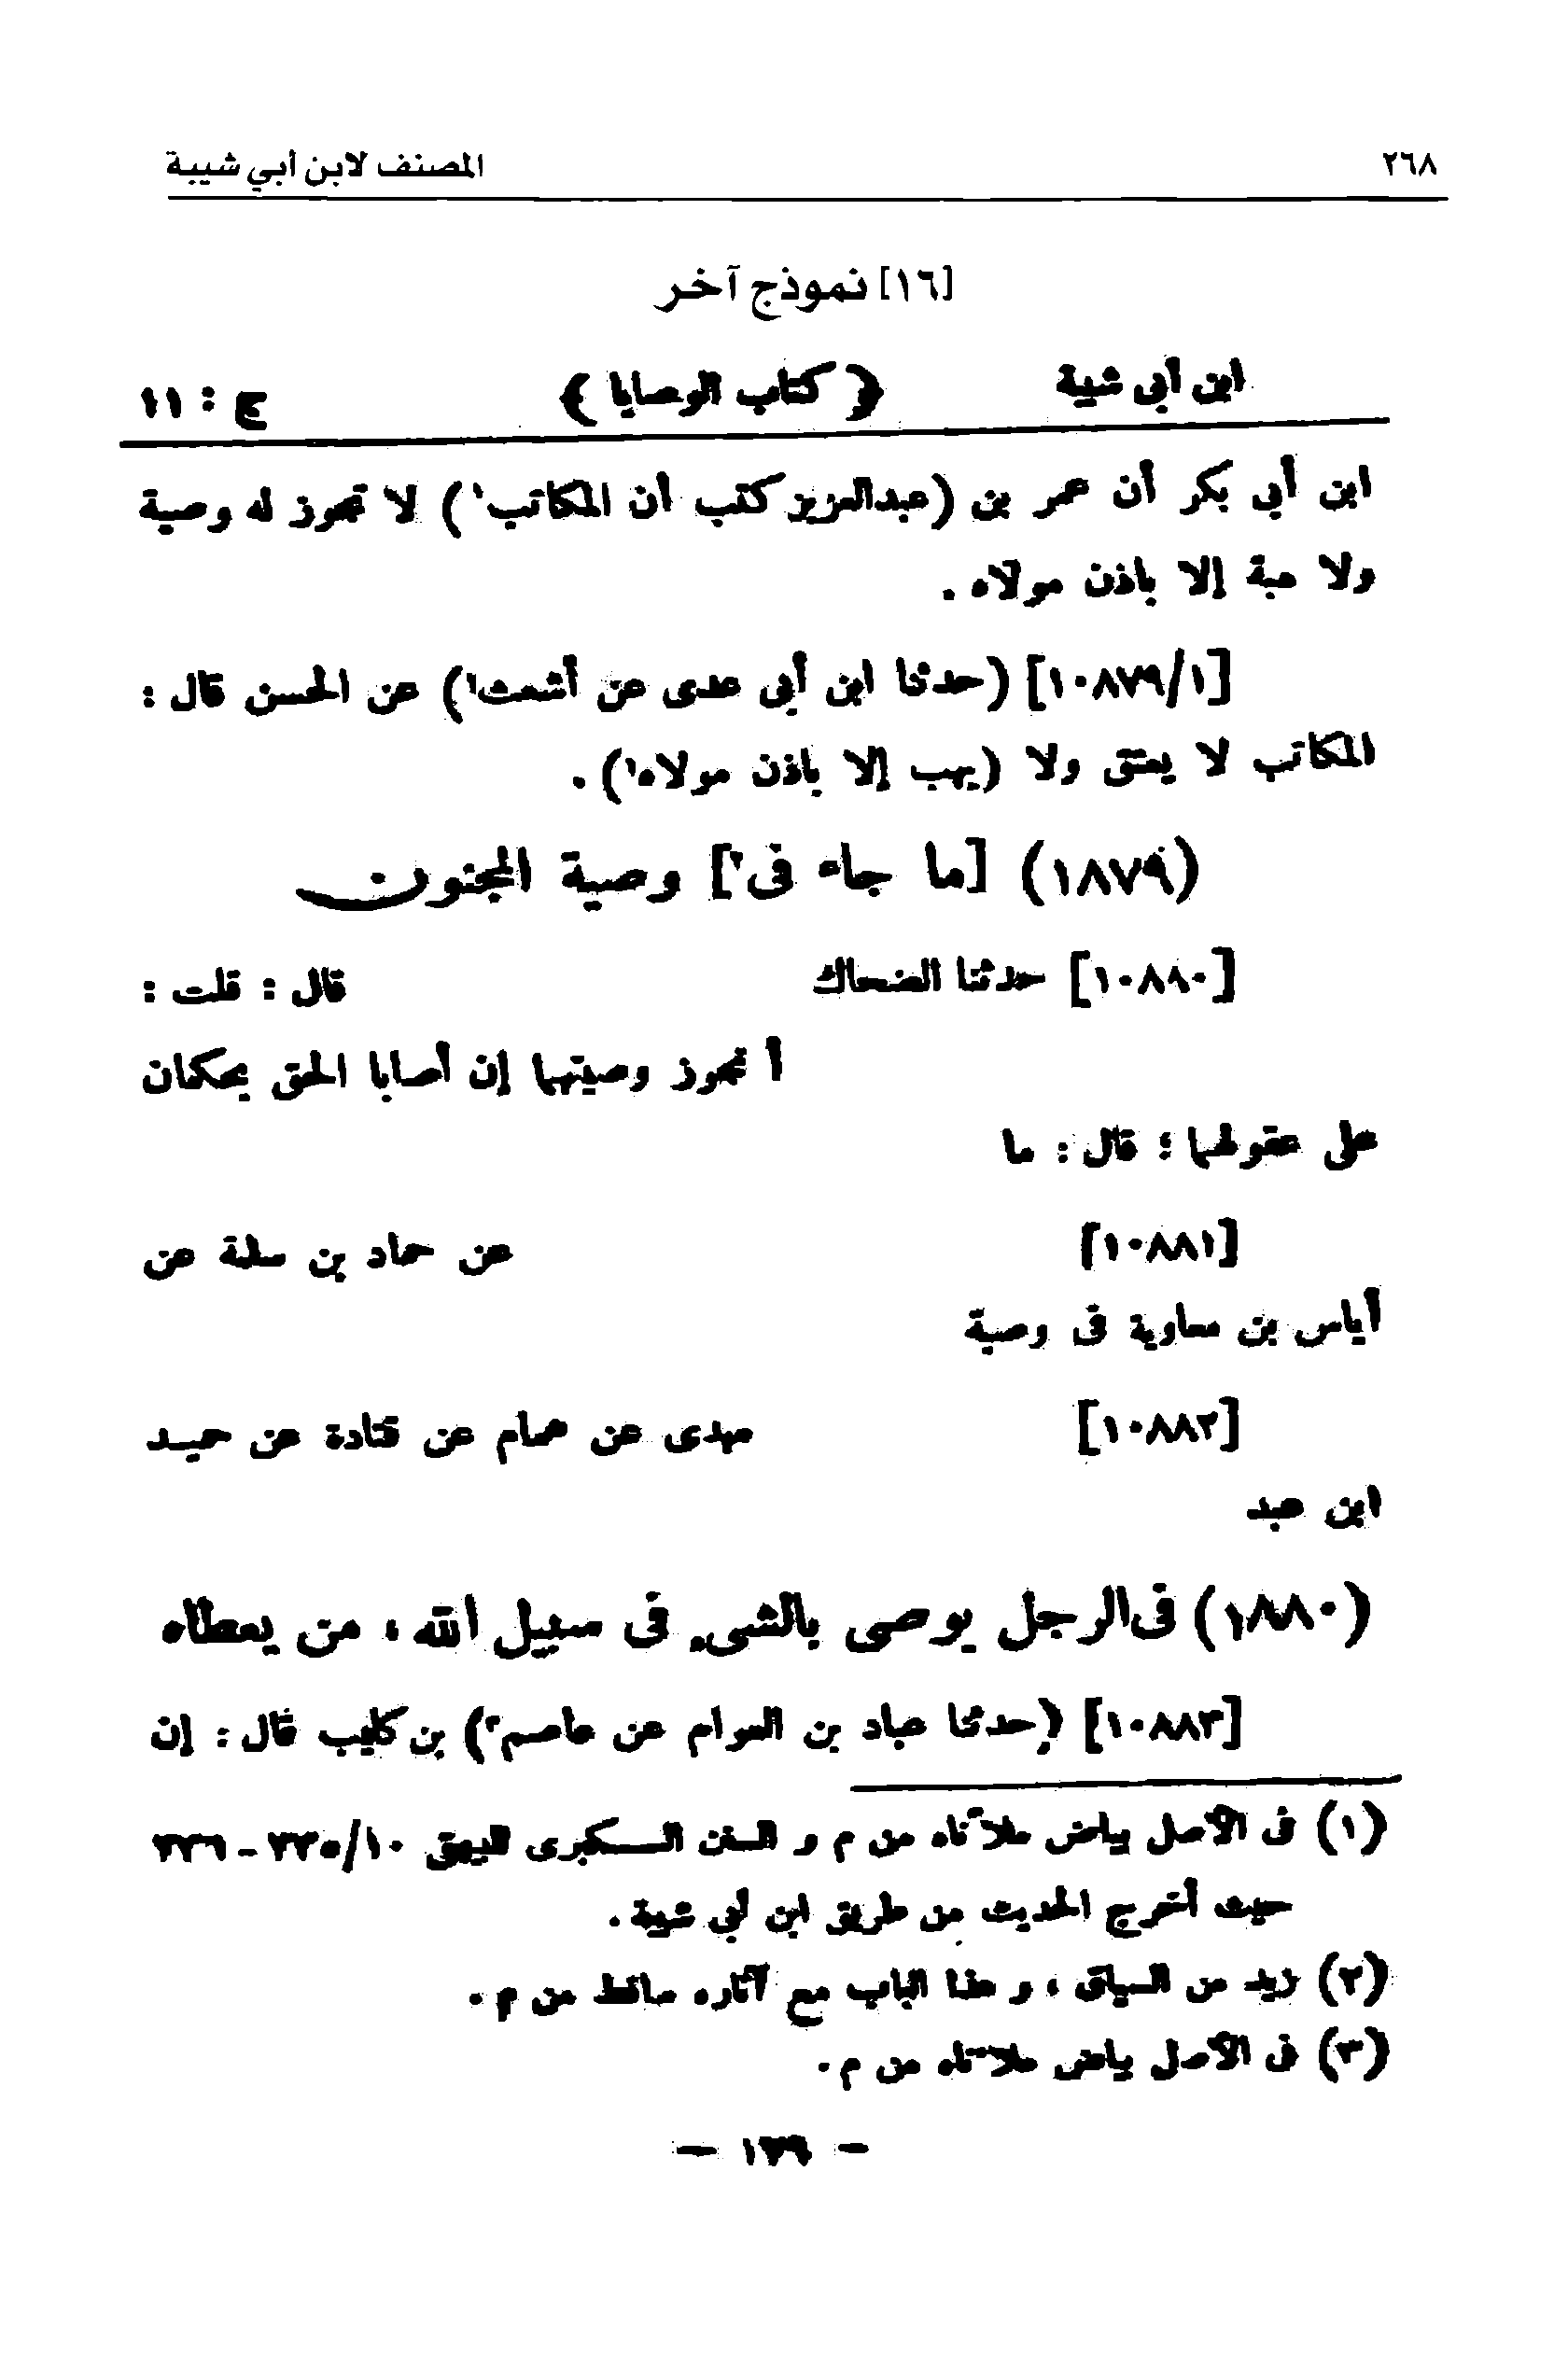 ٢٦٨ المصنف لابن أبي شيبة
[١٦] نموذج آخر
ابن أبى شيبة ﴿ كتاب الوصايا ﴾ ج : ١١
ابن أبى بكر أن عمر بن (عبدالعزيز كتب أن المكاتب١) لا تجوز له وصية
ولا هبة إلا باذن مولاه .
[١٠٨٧٩/١] (حدثنا ابن أبى عدى عن أشعث١) عن الحسن قال :
المكاتب لا يعتق ولا (يهب إلا باذن مولاه١) .
(١٨٧٩) [ما جاء فى٢] وصية المجنون
[١٠٨٨٠] حدثنا الضحاك قال : قلت :
أ تجوز وصيتهما إن أصابا الحق بحكان
على عقولهما ؟ قال : ما
[١٠٨٨١] عن حماد بن سلمة عن
أياس بن معاوية فى وصية
[١٠٨٨٢] مهدى عن همام عن قتادة عن حميد
ابن عبد
(١٨٨٠) فى الرجل يوصى بالشىء فى سبيل الله ، من يعطاه
[١٠٨٨٣] (حدثنا عباد بن العوام عن عاصم٣) بن كليب قال : إن
(١) فى الأصل بياض ملأناه من م و السنن الكبرى للبيهقى ٣٣٥/١٠ - ٣٣٦
حيث أخرج الحديث من طريق ابن أبى شيبة .
(٢) زيد من السياق ، و هذا الباب مع آثاره ساقط من م .
(٣) فى الأصل بياض ملأناه من م .
– ١٧٩ –